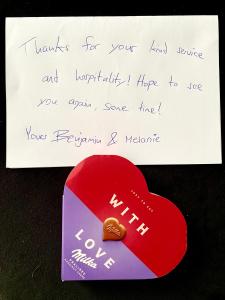 Thanks for your kind service
and hospitality! Hope to see
you again, some time!
Yours Benjamin & Melanie
WITH
LOVE
Milka
PRALINES